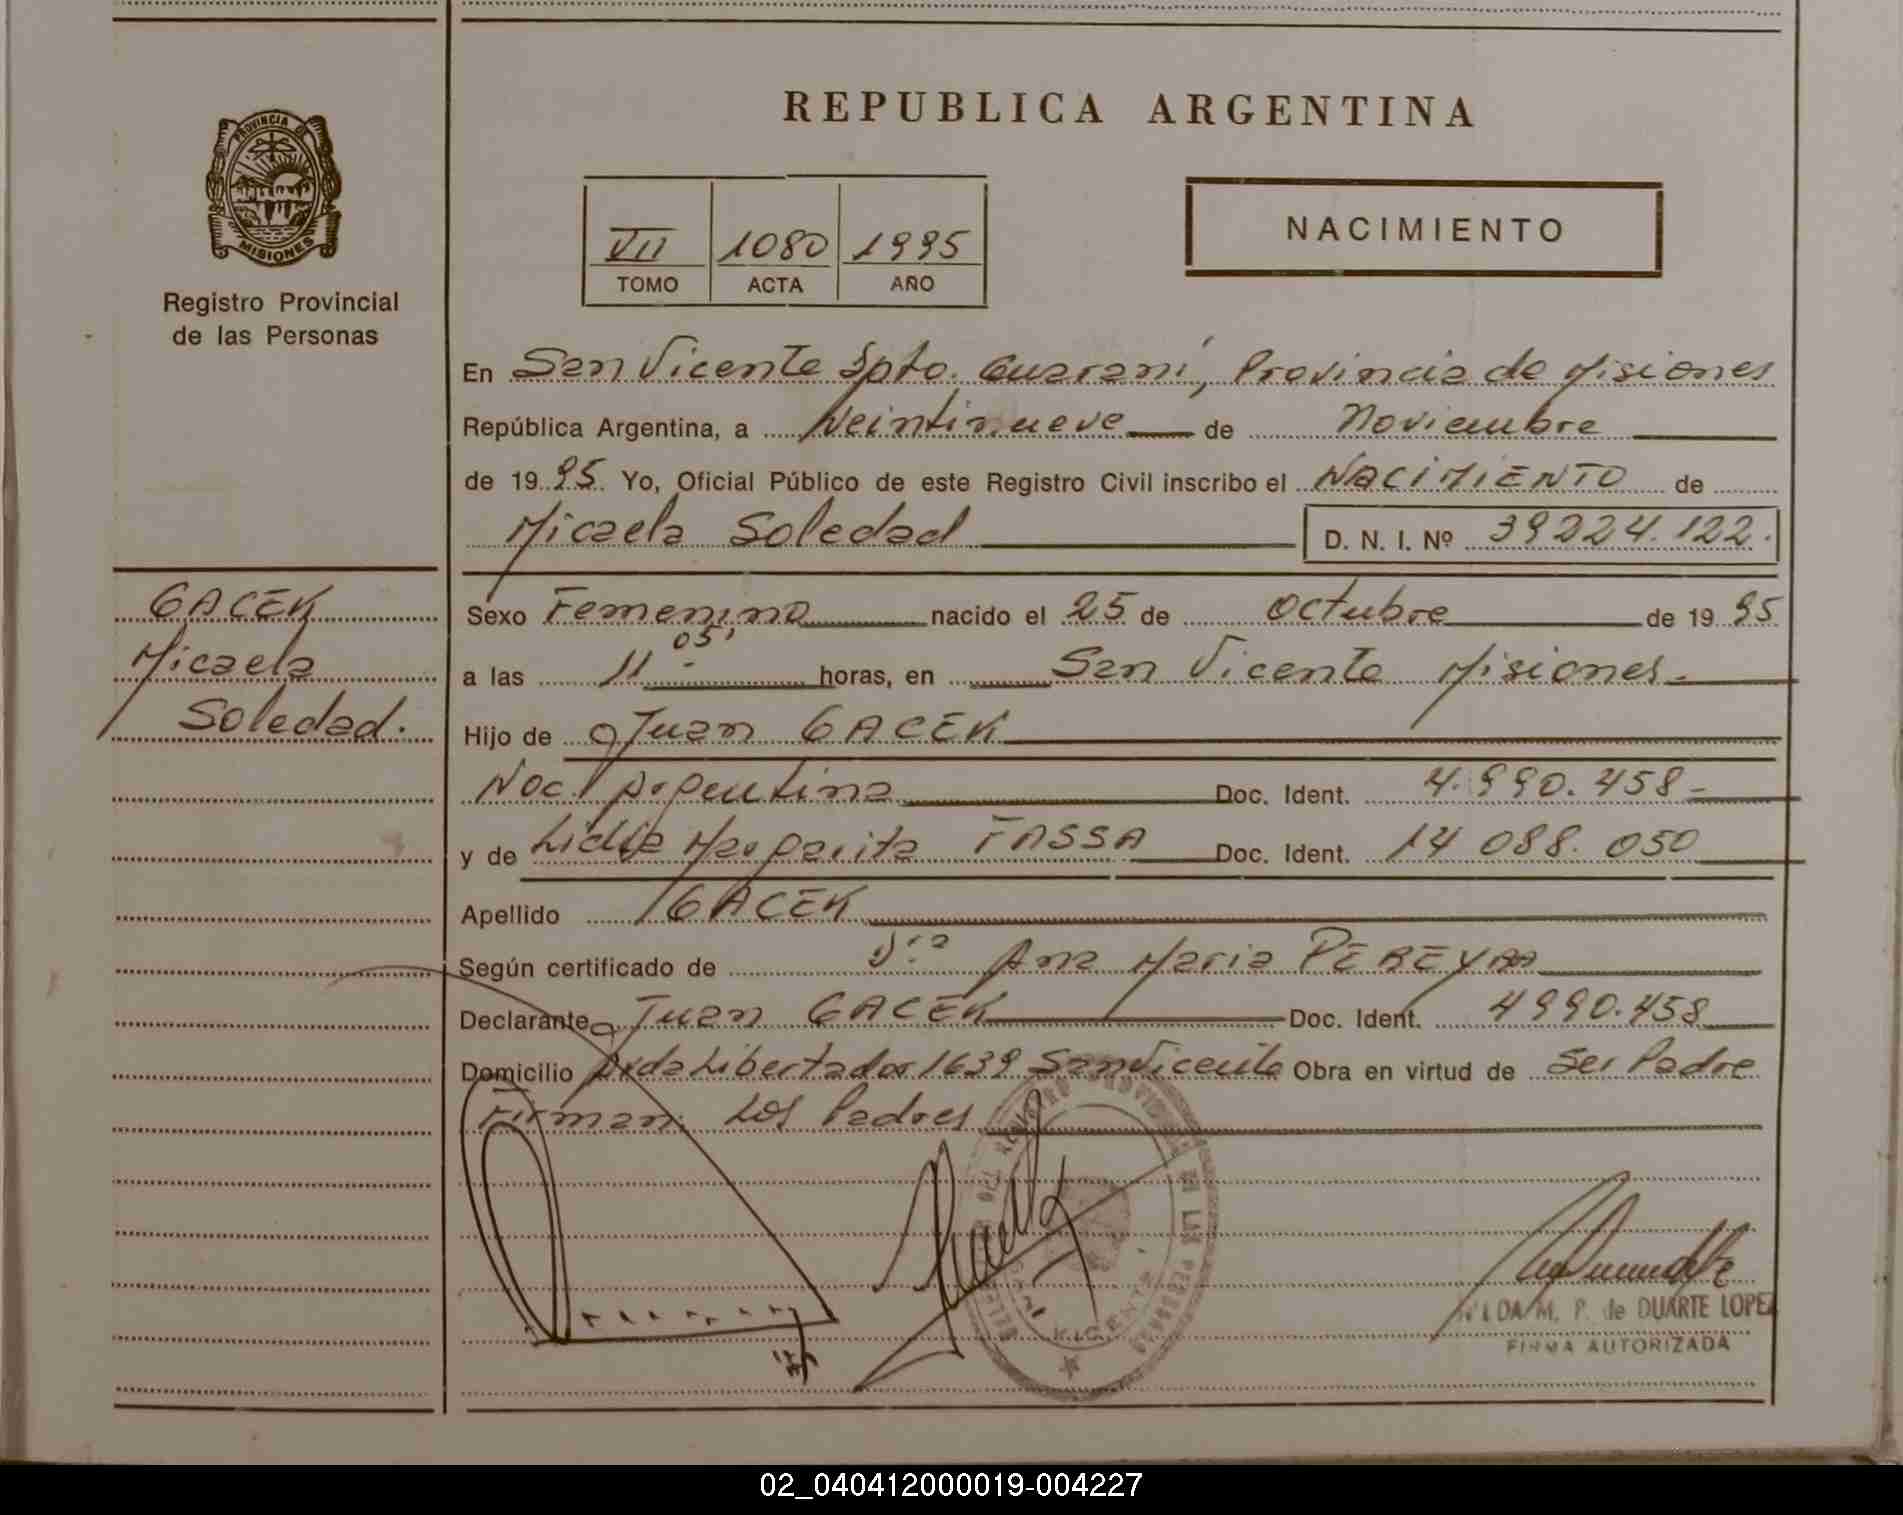 PROVINCIA DE
MISIONES
Registro Provincial
de las Personas
GACEK
Micaela
Soledad.
REPUBLICA ARGENTINA
VII 1080 1995
TOMO ACTA AÑO
NACIMIENTO
En San Vicente Dpto. Guaraní, Provincia de Misiones
República Argentina, a Veintinueve de Noviembre
de 1995 Yo, Oficial Público de este Registro Civil inscribo el NACIMIENTO de
Micaela Soledad D. N. I. Nº 39224.122.
Sexo Femenino nacido el 25 de Octubre de 1995
a las 11 05' horas, en San Vicente Misiones.-
Hijo de Juan GACEK
Nac. Argentina Doc. Ident. 4.990.458-
y de Lidia Margarita FASSA Doc. Ident. 14 088.050
Apellido GACEK
Según certificado de Ana Maria PEREYRA
Declarante Juan GACEK Doc. Ident. 4990.458
Domicilio Avda Libertador 1639 San Vicente Obra en virtud de Ser Padre
Firman: Los Padres
NILDA M. P. de DUARTE LOPEZ
FIRMA AUTORIZADA
02_040412000019-004227